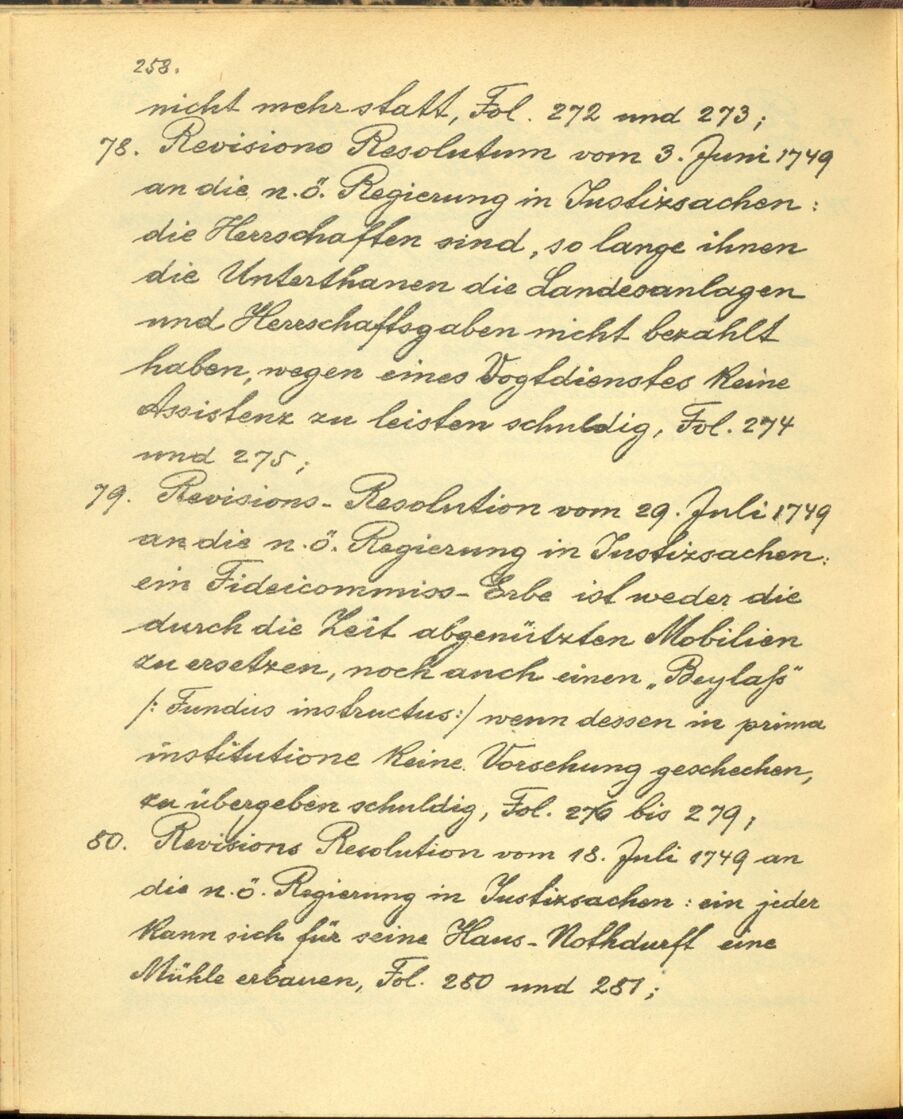 258.
nicht mehr statt, Fol. 272 und 273;
78. Revisions Resolutum vom 3. Juni 1749
an die n.ö. Regierung in Justizsachen:
die Herrschaften sind, so lange ihnen
die Unterthanen die Landesanlagen
und Herrschaftsgaben nicht bezahlt
haben, wegen eines Vogtdienstes keine
Assistenz zu leisten schuldig, Fol. 274
und 275;
79. Revisions-Resolution vom 29. Juli 1749
an die n.ö. Regierung in Justizsachen:
ein Fideicommiss-Erbe ist weder die
durch die Zeit abgenützten Mobilien
zu ersetzen, noch auch einen „Beylaß"
/: Fundus instructus:/ wenn dessen in prima
institutione keine Vorsehung geschechen,
zu übergeben schuldig, Fol. 276 bis 279;
80. Revisions Resolution vom 18. Juli 1749 an
die n.ö. Regierung in Justizsachen: ein jeder
kann sich für seine Haus-Nothdurft eine
Mühle erbauen, Fol. 280 und 281;